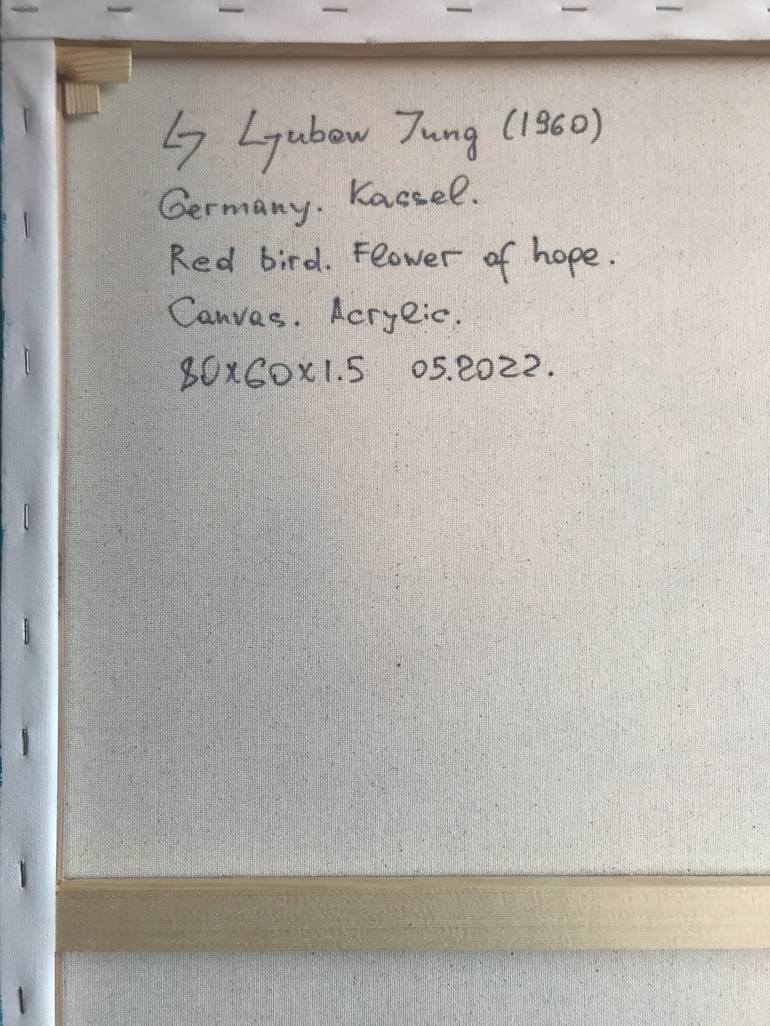 Ljubow Jung (1960)
Germany. Kassel.
Red bird. Flower of hope.
Canvas. Acrylic.
80x60x1.5 05.2022.